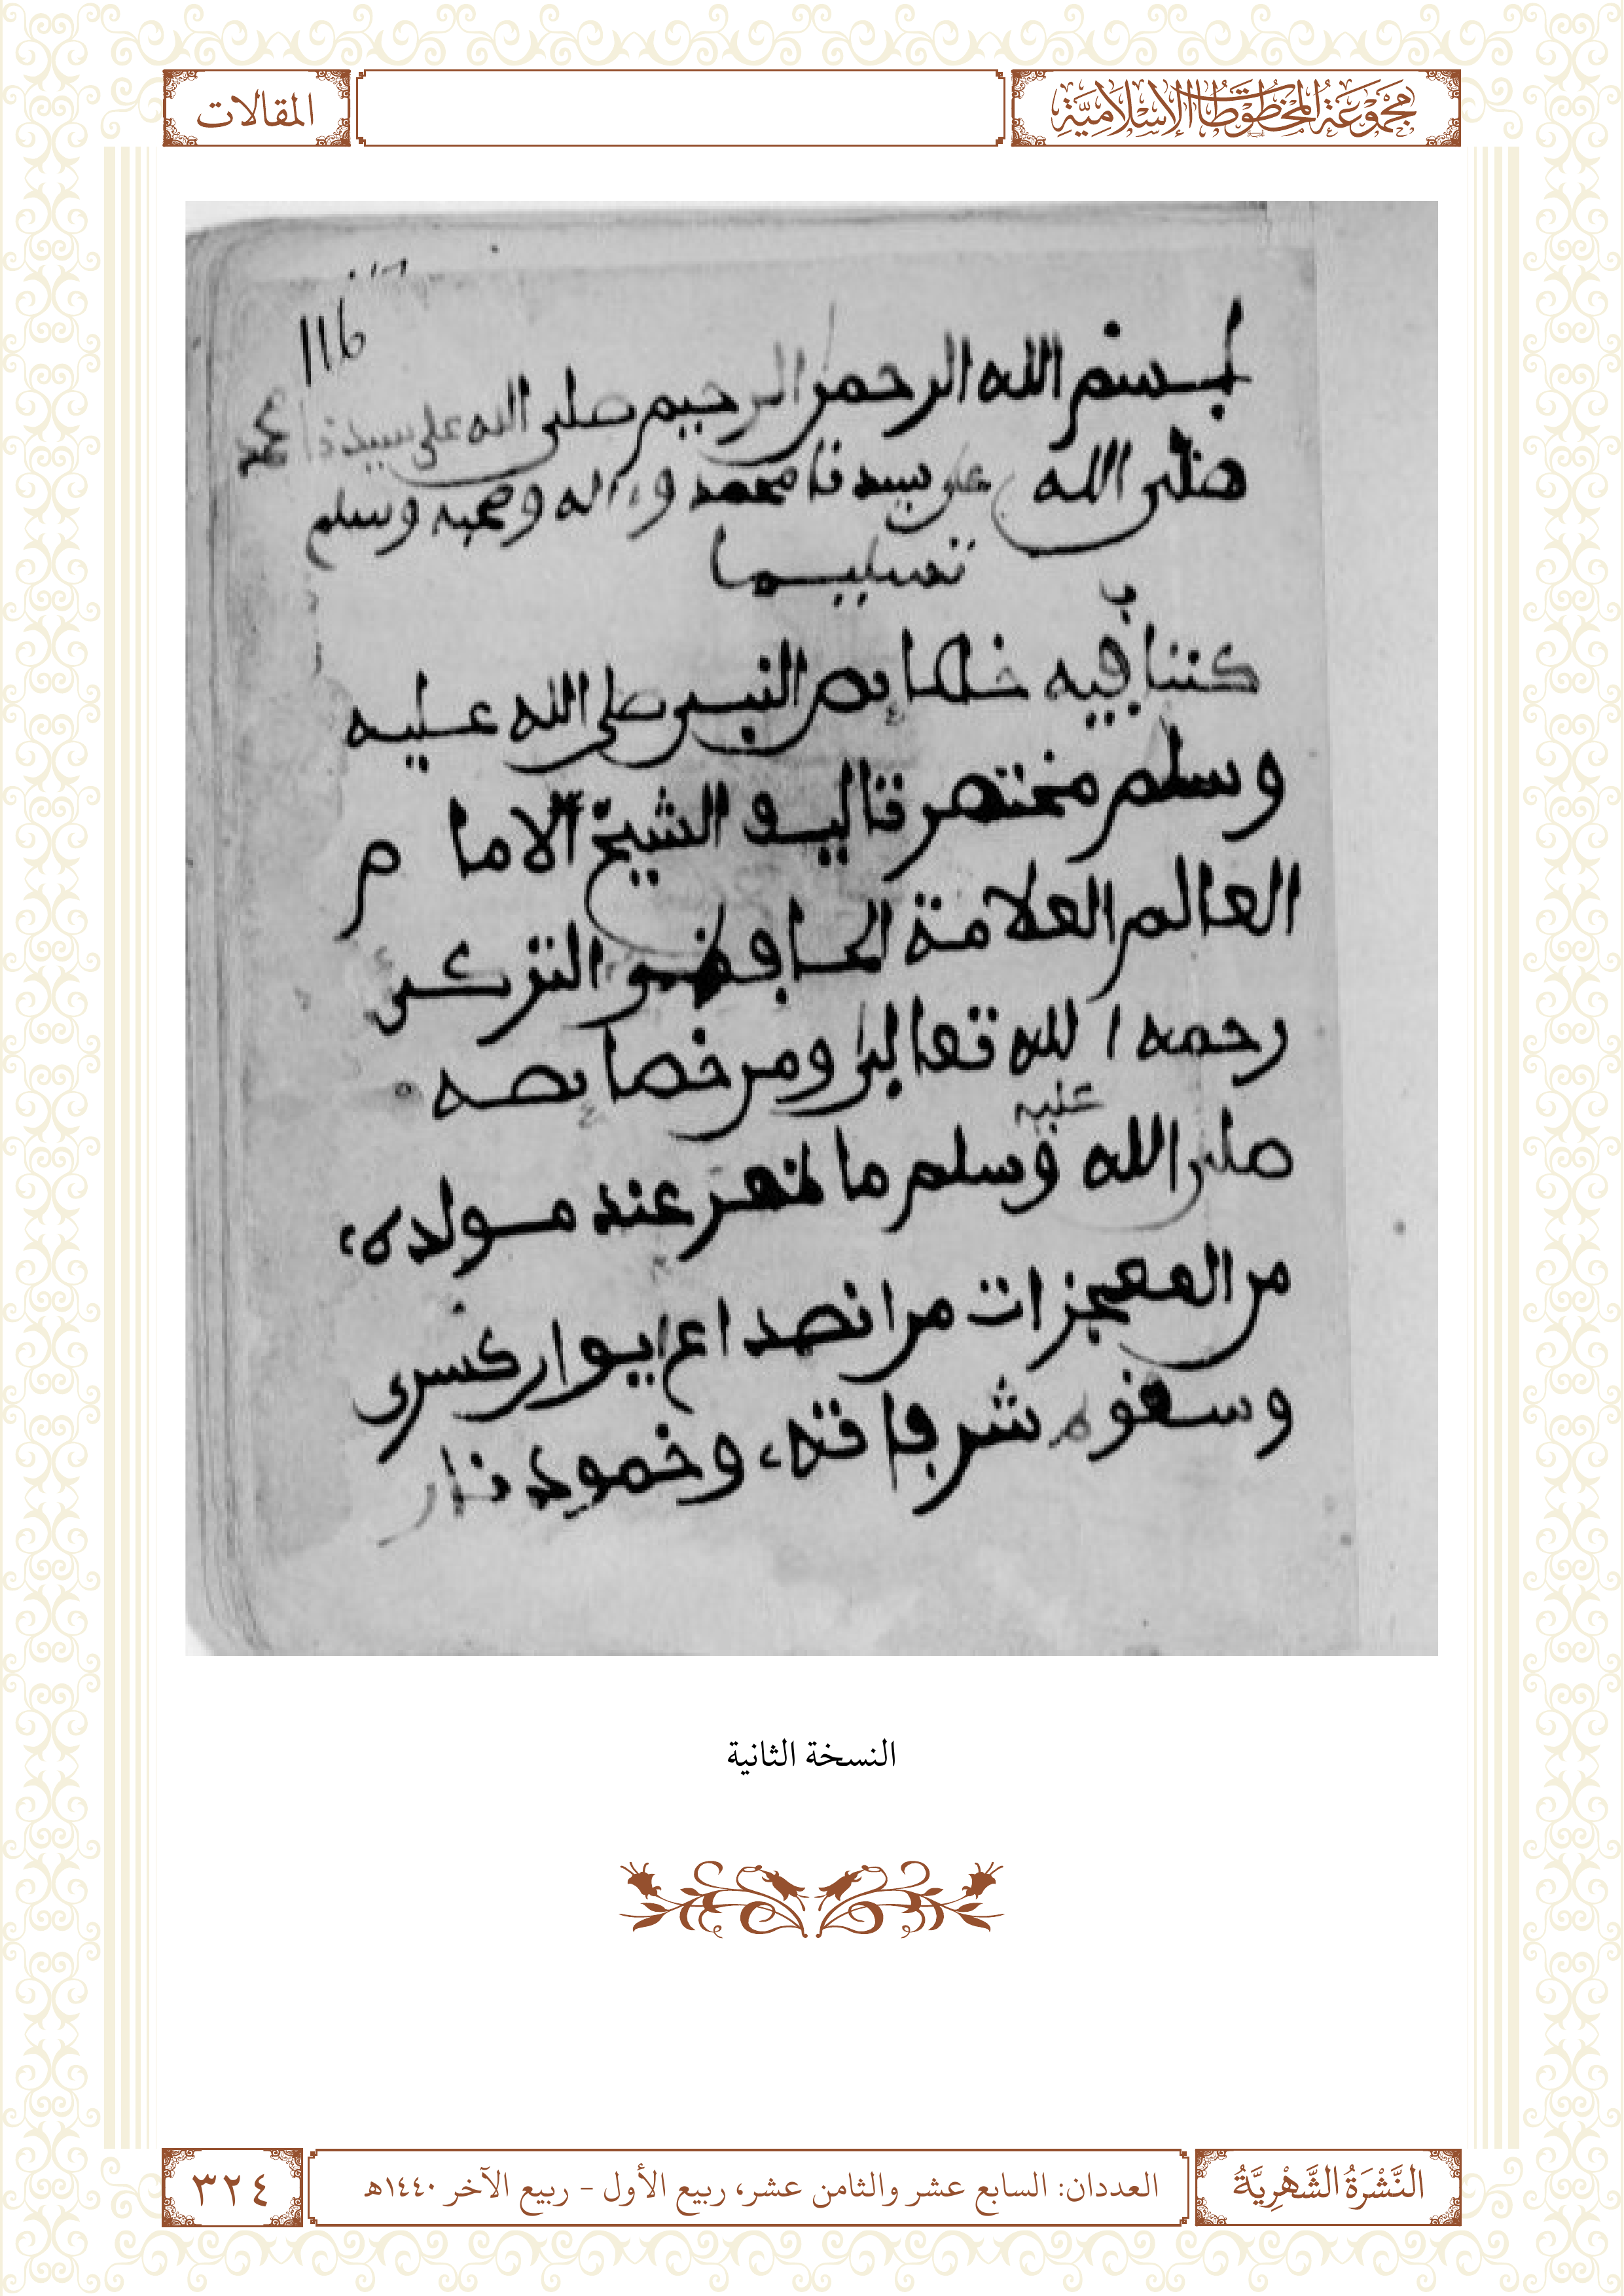 مَجْمُوعَةُ المَخْطُوطَاتِ الإِسْلَامِيَّةِ
المقالات
116
بسم الله الرحمن الرحيم صلى الله على سيدنا محمد
صلى الله على سيدنا محمد وءاله وصحبه وسلم
تسليما
كتاب فيه خصايص النبي صلى الله عليه
وسلم مختصر تاليف الشيخ الامام
العالم العلامة الحافظ التزكي
رحمه الله تعالى ومن خصايصه
صلى الله عليه وسلم ما ظهر عند مولده،
من المعجزات من انصداع ايوان كسرى
وسقوط شرفاته، وخمود نار
النسخة الثانية
النَّشْرَةُ الشَّهْرِيَّةُ
العددان: السابع عشر والثامن عشر، ربيع الأول - ربيع الآخر ١٤٤٠هـ
٣٢٤